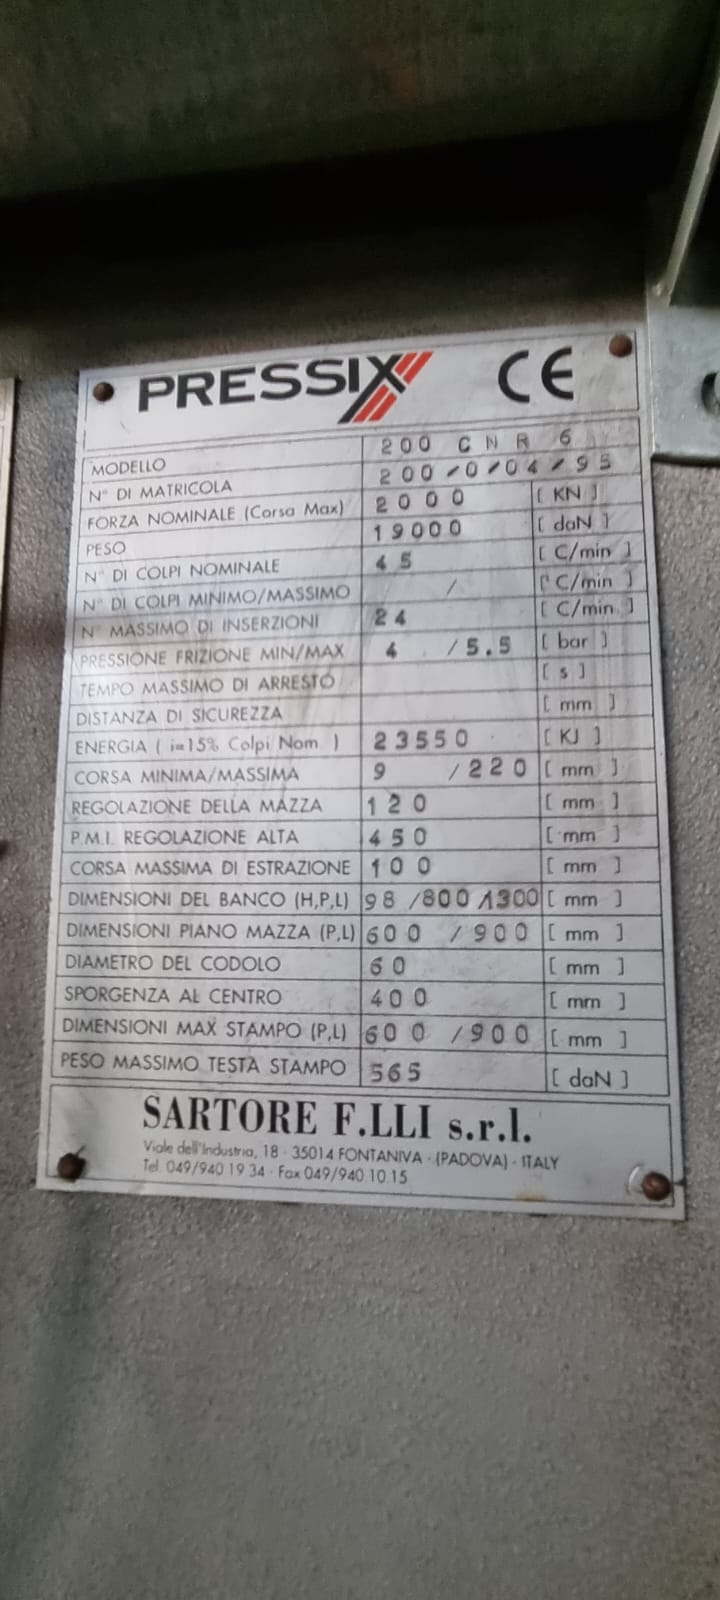 PRESSIX CE
MODELLO 200 CNR 6
N° DI MATRICOLA 200/0/04/95
FORZA NOMINALE (Corsa Max) 2000 [ KN ]
PESO 19000 [ daN ]
N° DI COLPI NOMINALE 45 [ C/min ]
N° DI COLPI MINIMO/MASSIMO / [ C/min ]
N° MASSIMO DI INSERZIONI 24 [ C/min ]
PRESSIONE FRIZIONE MIN/MAX 4 /5.5 [ bar ]
TEMPO MASSIMO DI ARRESTO [ s ]
DISTANZA DI SICUREZZA [ mm ]
ENERGIA ( i=15% Colpi Nom ) 23550 [ KJ ]
CORSA MINIMA/MASSIMA 9 /220 [ mm ]
REGOLAZIONE DELLA MAZZA 120 [ mm ]
P.M.I. REGOLAZIONE ALTA 450 [ mm ]
CORSA MASSIMA DI ESTRAZIONE 100 [ mm ]
DIMENSIONI DEL BANCO (H,P,L) 98 /800/1300 [ mm ]
DIMENSIONI PIANO MAZZA (P,L) 600 /900 [ mm ]
DIAMETRO DEL CODOLO 60 [ mm ]
SPORGENZA AL CENTRO 400 [ mm ]
DIMENSIONI MAX STAMPO (P,L) 600 /900 [ mm ]
PESO MASSIMO TESTA STAMPO 565 [ daN ]
SARTORE F.LLI s.r.l.
Viale dell'Industria, 18 - 35014 FONTANIVA - (PADOVA) - ITALY
Tel. 049/940 19 34 - Fax 049/940.10.15